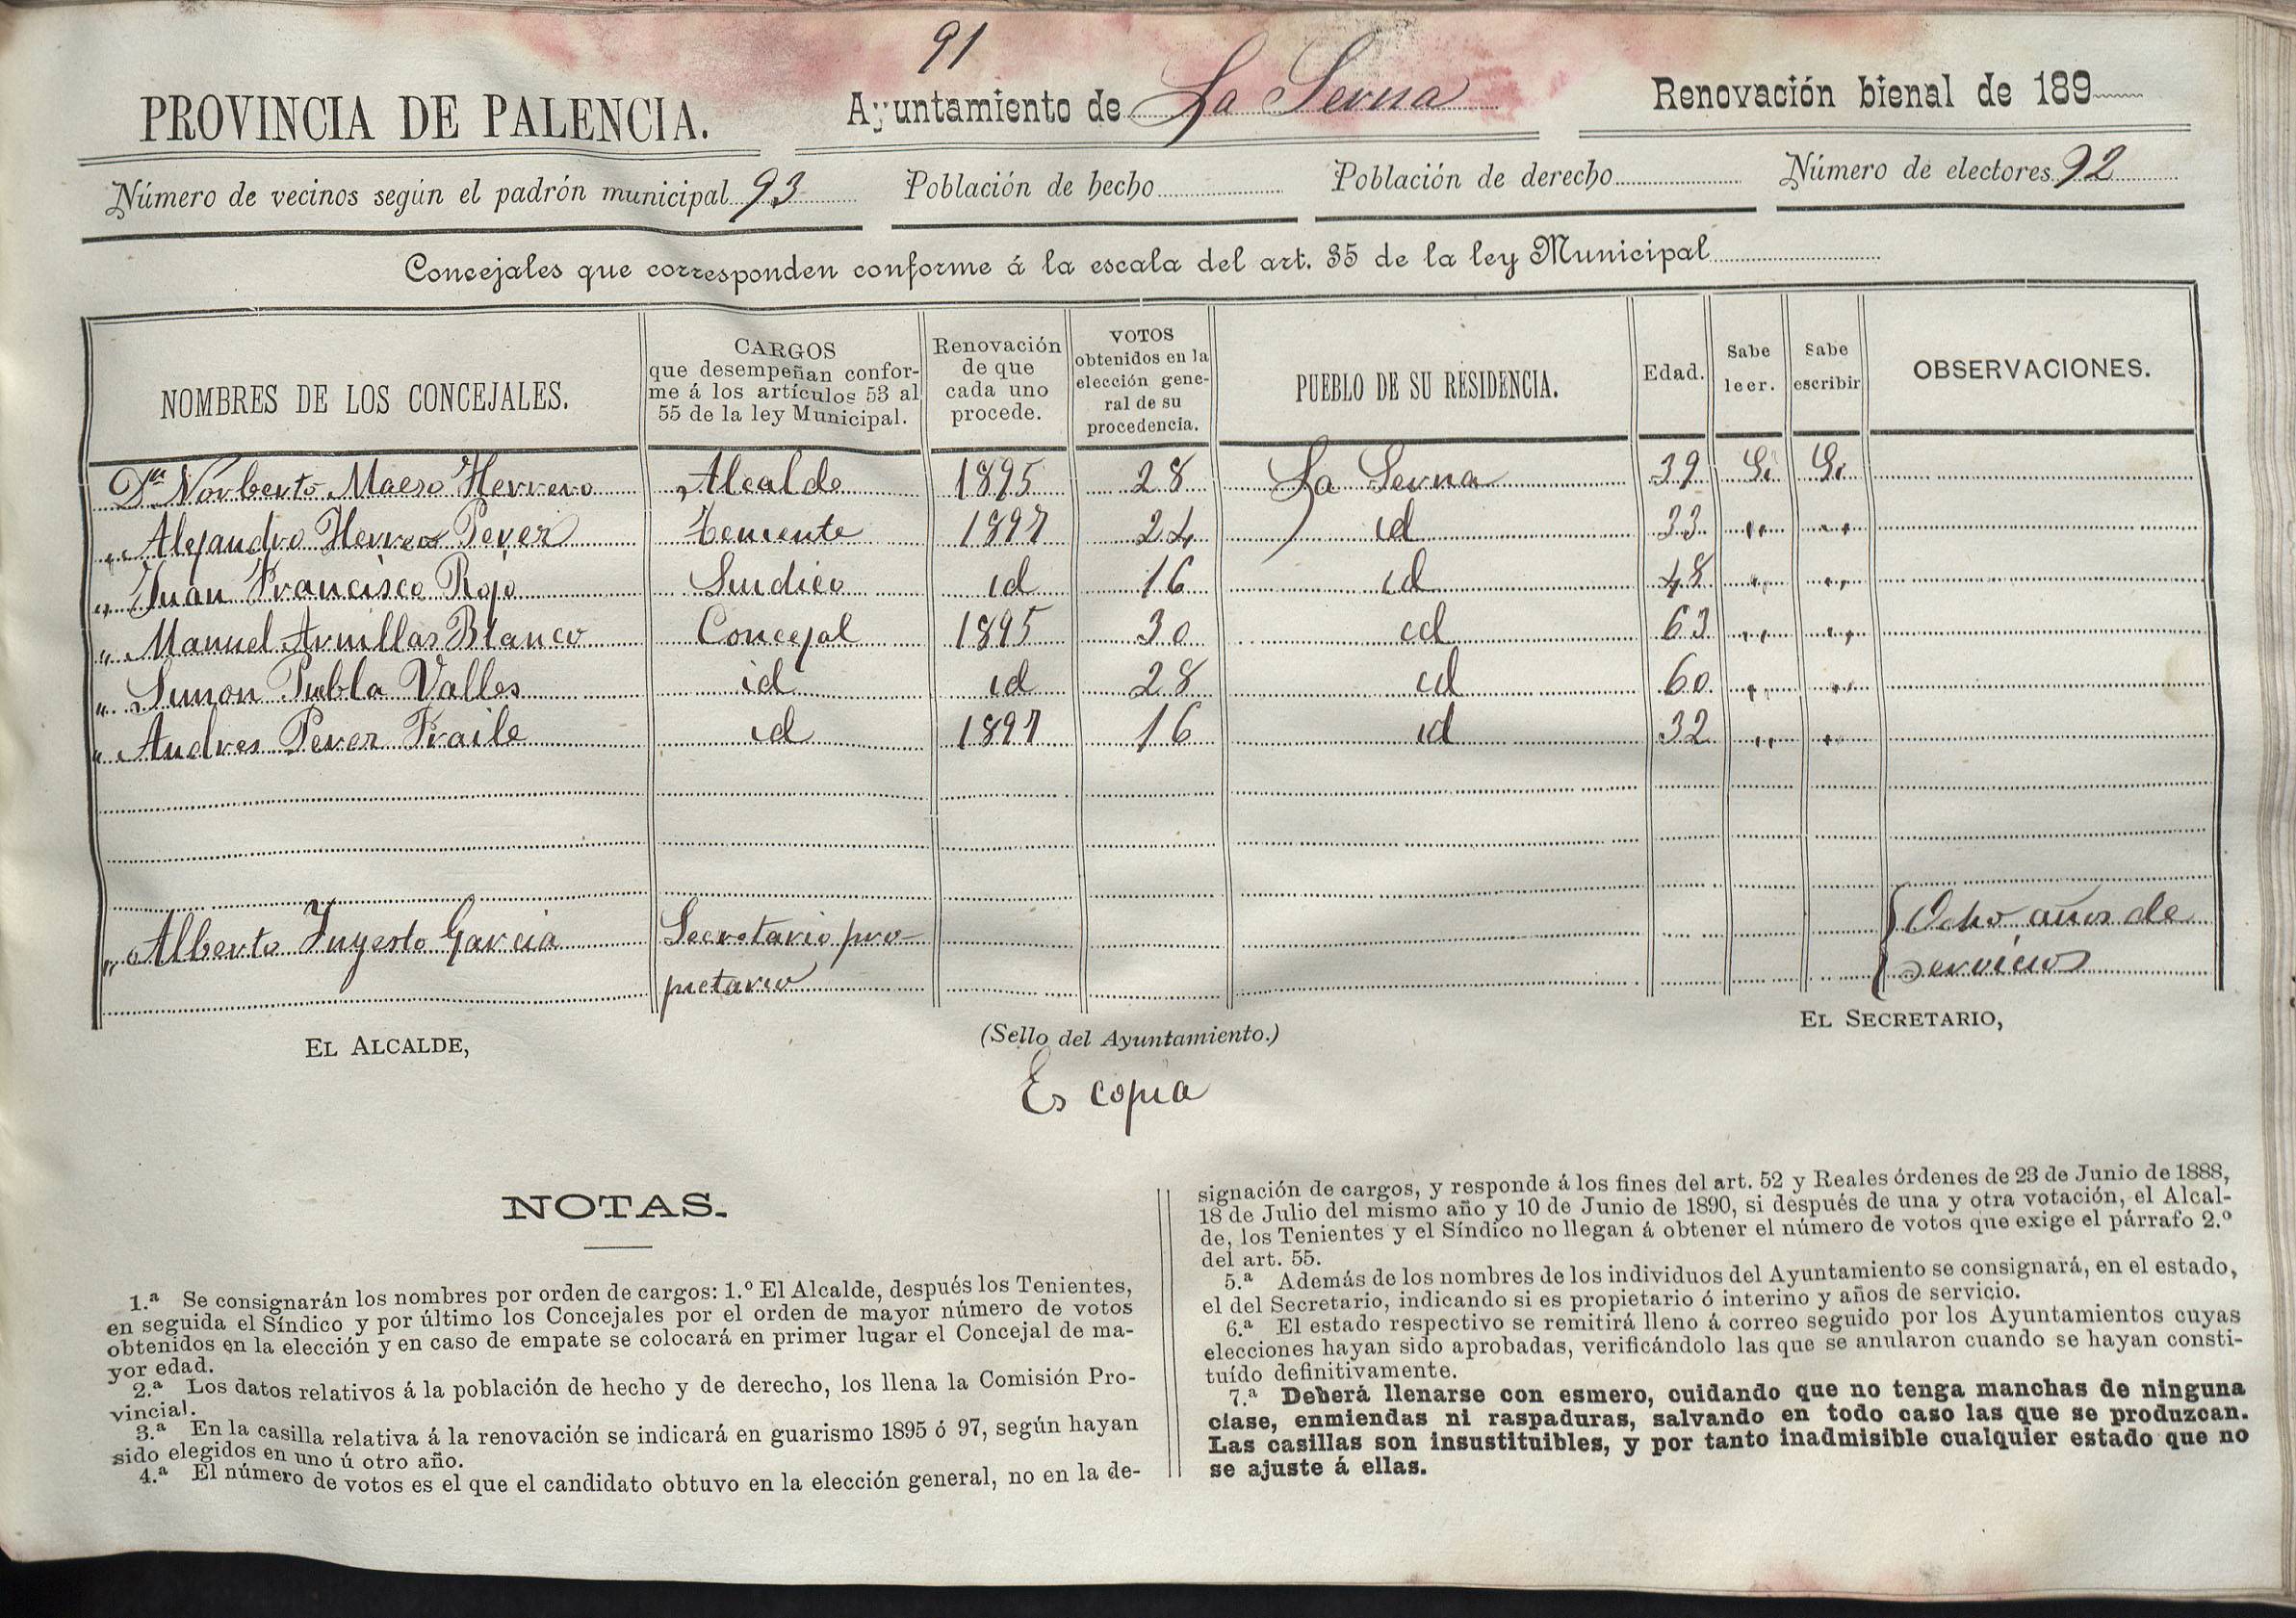 91
PROVINCIA DE PALENCIA.
Ayuntamiento de La Serna
Renovación bienal de 189
Número de vecinos según el padrón municipal 93
Población de hecho
Población de derecho
Número de electores 92
Concejales que corresponden conforme á la escala del art. 35 de la ley Municipal
NOMBRES DE LOS CONCEJALES.
CARGOS
que desempeñan confor-
me á los artículos 53 al
55 de la ley Municipal.
Renovación
de que
cada uno
procede.
VOTOS
obtenidos en la
elección gene-
ral de su
procedencia.
PUEBLO DE SU RESIDENCIA.
Edad.
Sabe
leer.
Sabe
escribir
OBSERVACIONES.
Dn Norberto Maeso Herrero Alcalde 1895 28 La Serna 39 Si Si
" Alejandro Herrero Perez Teniente 1897 24 id 33 " "
" Juan Francisco Rojo Sindico id 16 id 48 " "
" Manuel Arnillas Blanco Concejal 1895 30 id 63 " "
" Simon Puebla Valles id id 28 id 60 " "
" Andres Perez Fraile id 1897 16 id 32 " "
" Alberto Garcia Secretario pro-
pietario
Ocho años de
servicios
EL ALCALDE,
(Sello del Ayuntamiento.)
EL SECRETARIO,
Es copia
NOTAS.
1.ª Se consignarán los nombres por orden de cargos: 1.º El Alcalde, después los Tenientes,
en seguida el Síndico y por último los Concejales por el orden de mayor número de votos
obtenidos en la elección y en caso de empate se colocará en primer lugar el Concejal de ma-
yor edad.
2.ª Los datos relativos á la población de hecho y de derecho, los llena la Comisión Pro-
vincial.
3.ª En la casilla relativa á la renovación se indicará en guarismo 1895 ó 97, según hayan
sido elegidos en uno ú otro año.
4.ª El número de votos es el que el candidato obtuvo en la elección general, no en la de-
signación de cargos, y responde á los fines del art. 52 y Reales órdenes de 23 de Junio de 1888,
18 de Julio del mismo año y 10 de Junio de 1890, si después de una y otra votación, el Alcal-
de, los Tenientes y el Síndico no llegan á obtener el número de votos que exige el párrafo 2.º
del art. 55.
5.ª Además de los nombres de los individuos del Ayuntamiento se consignará, en el estado,
el del Secretario, indicando si es propietario ó interino y años de servicio.
6.ª El estado respectivo se remitirá lleno á correo seguido por los Ayuntamientos cuyas
elecciones hayan sido aprobadas, verificándolo las que se anularon cuando se hayan consti-
tuído definitivamente.
7.ª Deberá llenarse con esmero, cuidando que no tenga manchas de ninguna
clase, enmiendas ni raspaduras, salvando en todo caso las que se produzcan.
Las casillas son insustituibles, y por tanto inadmisible cualquier estado que no
se ajuste á ellas.